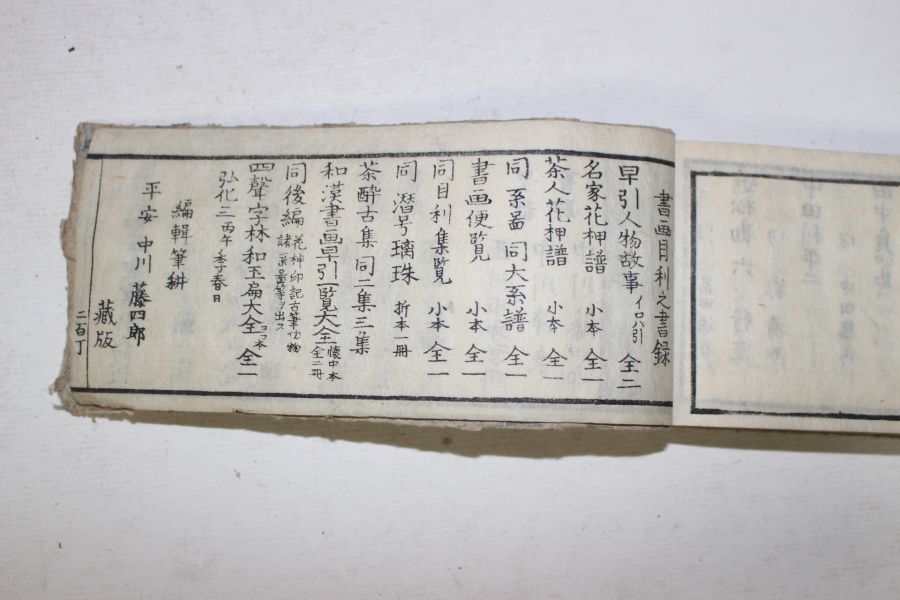 書画目利之書録
早引人物故事 イロハ引 全二
名家花押譜 小本 全一
茶人花押譜 小本 全一
同 系図 同大系譜 全一
書画便覧 小本 全一
同目利集覧 小本 全一
同 潜号璃珠 折本一冊
茶酔古集 同二集三集
和漢書画早引一覧大全 懐中本 全二冊
同後編 花押印記古筆仿物 諸系図等ヲ出ス
四聲字林和玉扁大全 ヨコ本 全一
弘化三丙午季春日
編輯筆耕
平安 中川藤四郎
藏版
二百丁